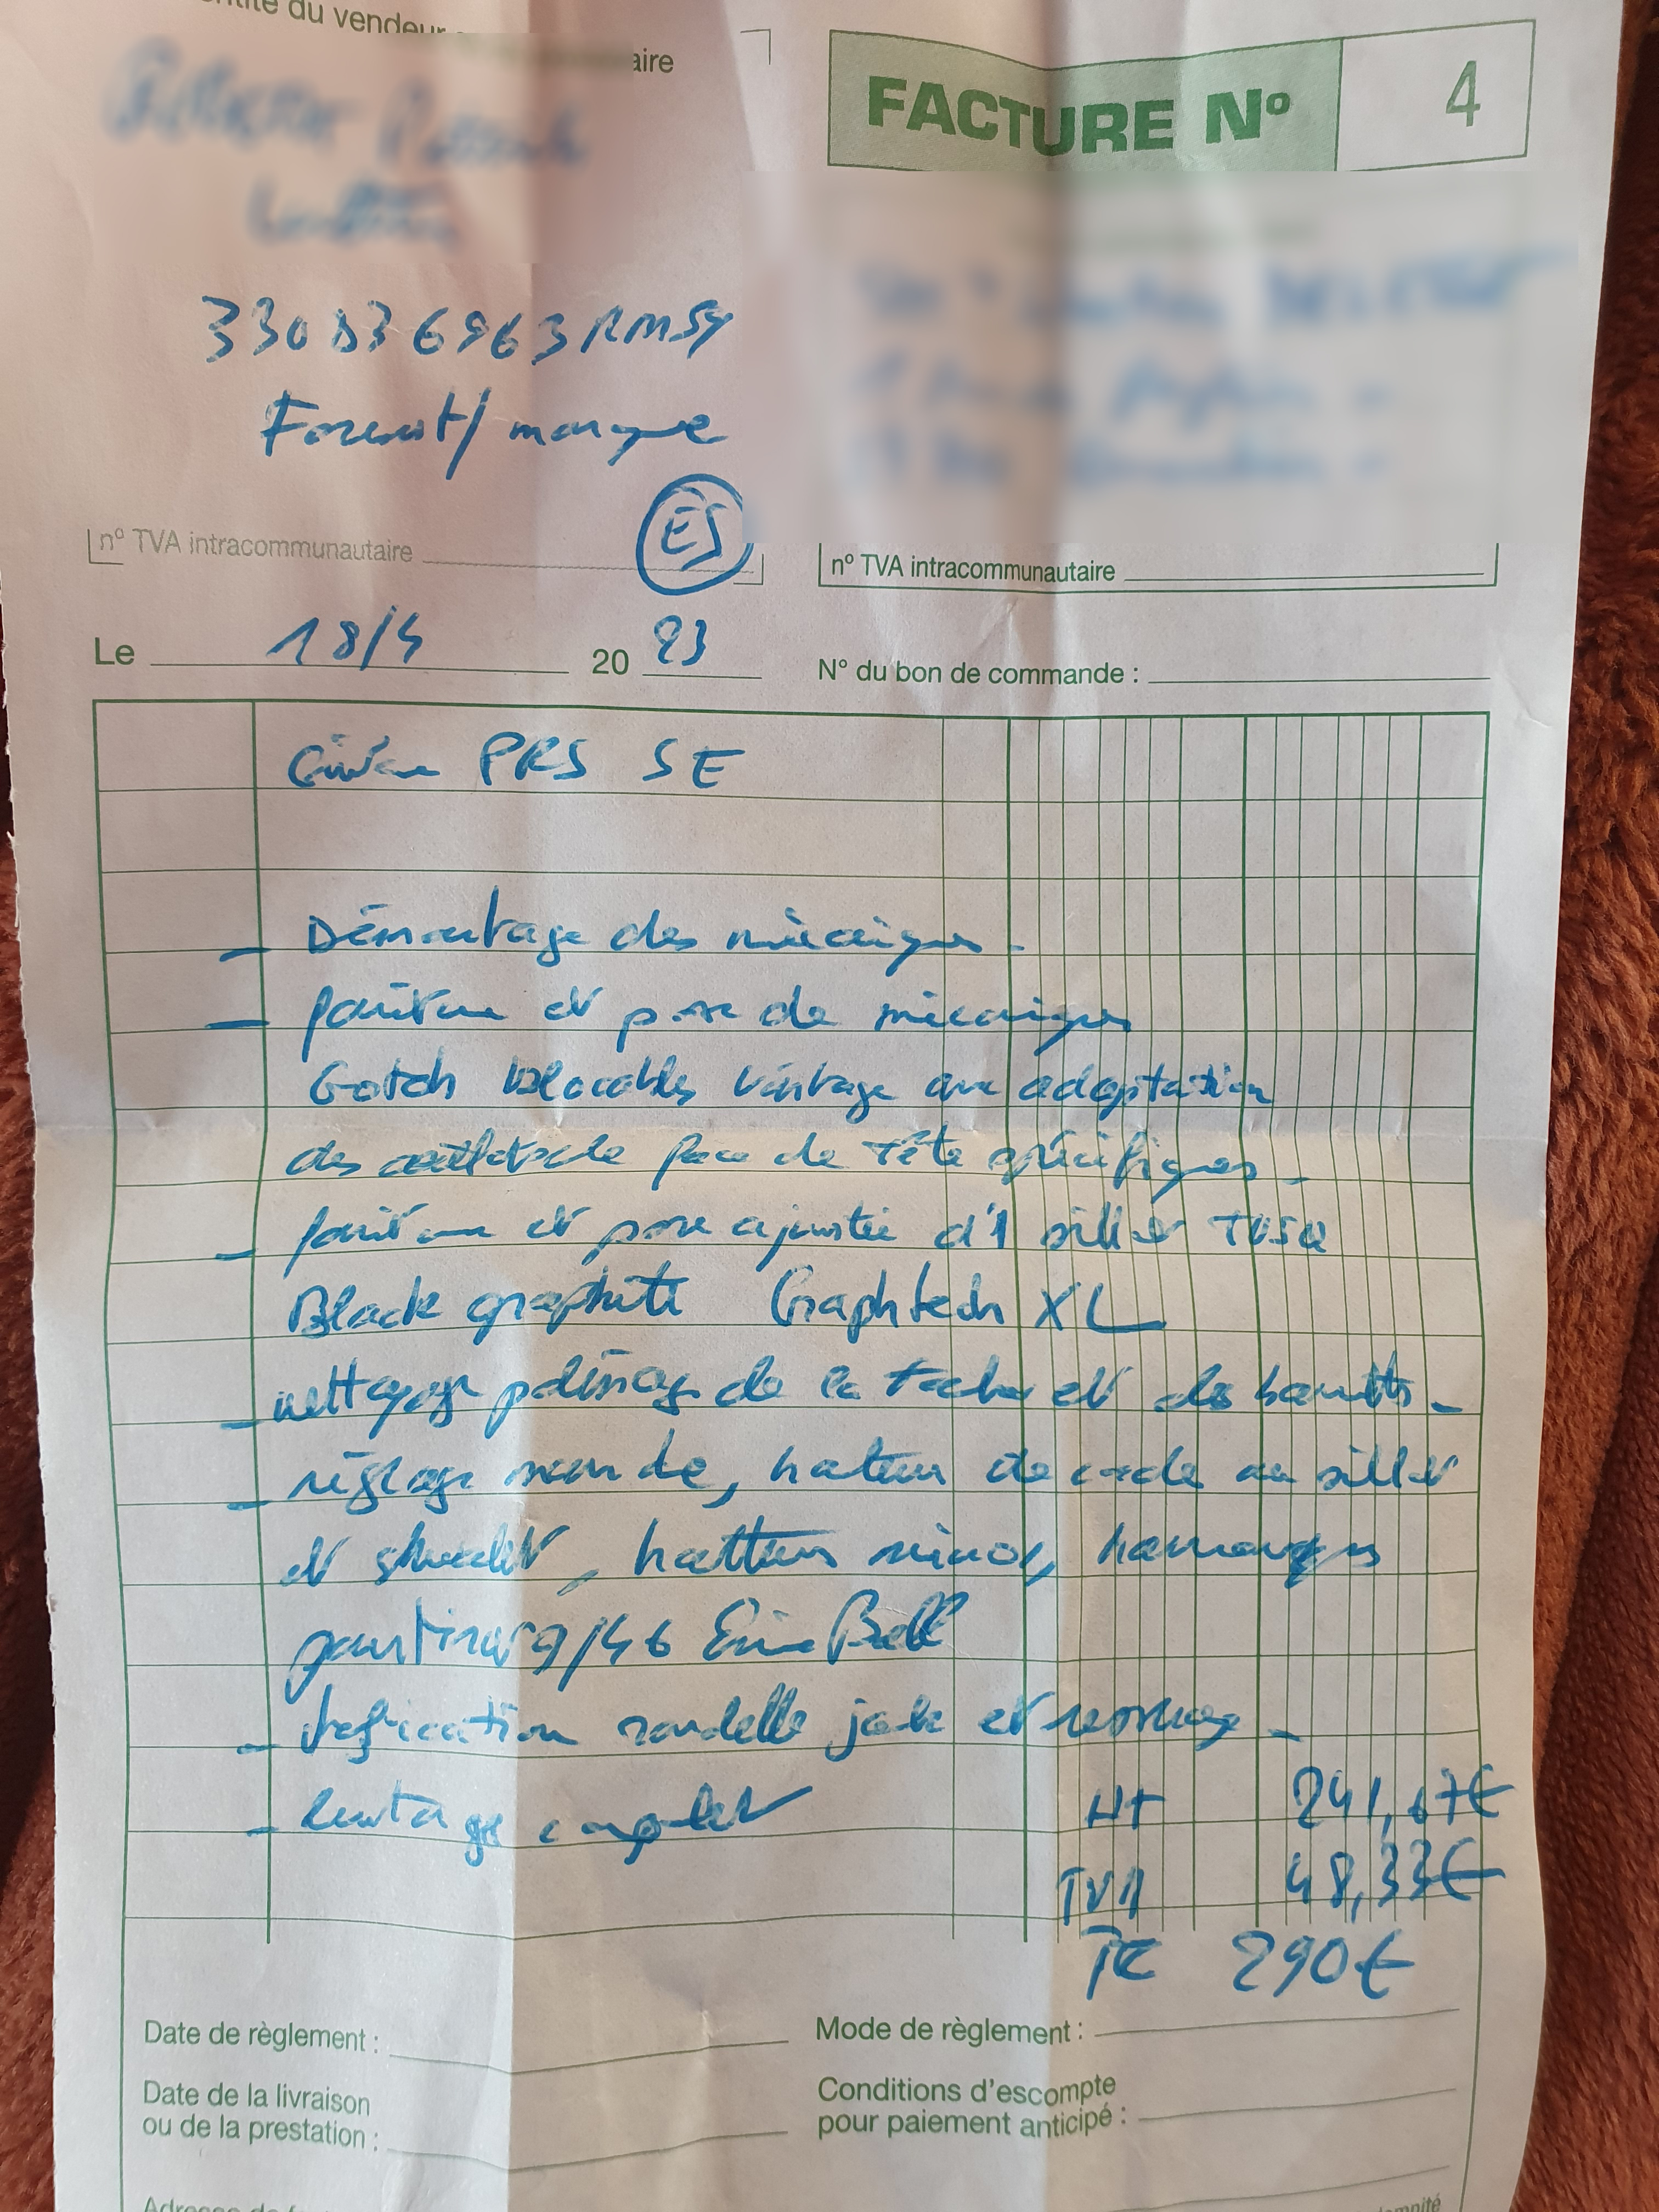 du vendeur
aire
FACTURE Nº 4
Forest/ marque
ES
nº TVA intracommunautaire
nº TVA intracommunautaire
Le 18/4 2023
N° du bon de commande :
Guitare PRS SE
- Démontage des mécaniques -
- fourniture et pose de mécaniques
Gotoh blocables vintage avec adaptation
des de face de tête spécifiques -
- fourniture et pose ajustée d'1 sillet TUSQ
Black graphite Graphtech XL
- nettoyage polissage de la touche et des barrettes -
- réglage manche, hauteur de corde au sillet
et chevalet, hauteur micros, harmoniques
pour tirant 9/46 Ernie Ball
- rondelle jack et ressoudage -
- lustrage complet
HT 241,67€
TVA 48,33€
TTC 290€
Date de règlement :
Mode de règlement :
Date de la livraison
ou de la prestation :
Conditions d'escompte
pour paiement anticipé :